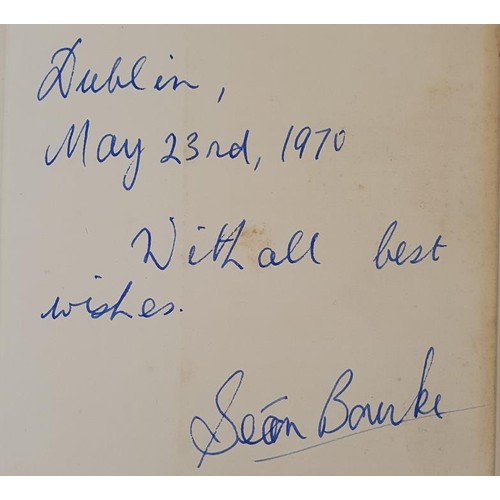 Dublin,
May 23rd, 1970
With all best
wishes.
Seán Bourke